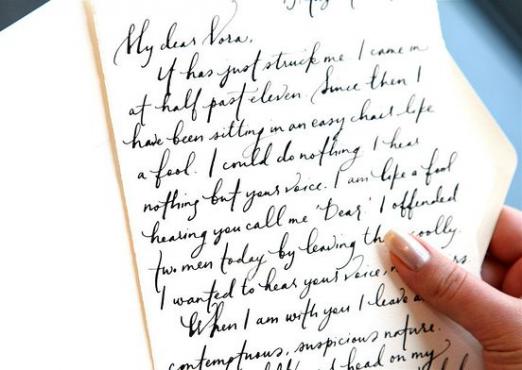 My dear Nora,
It has just struck me. I came in
at half past eleven. Since then I
have been sitting in an easy chair like
a fool. I could do nothing. I hear
nothing but your voice. I am like a fool
hearing you call me 'Dear.' I offended
two men today by leaving coolly.
I wanted to hear your voice,
When I am with you I leave
contemptuous, suspicious nature.
head on my